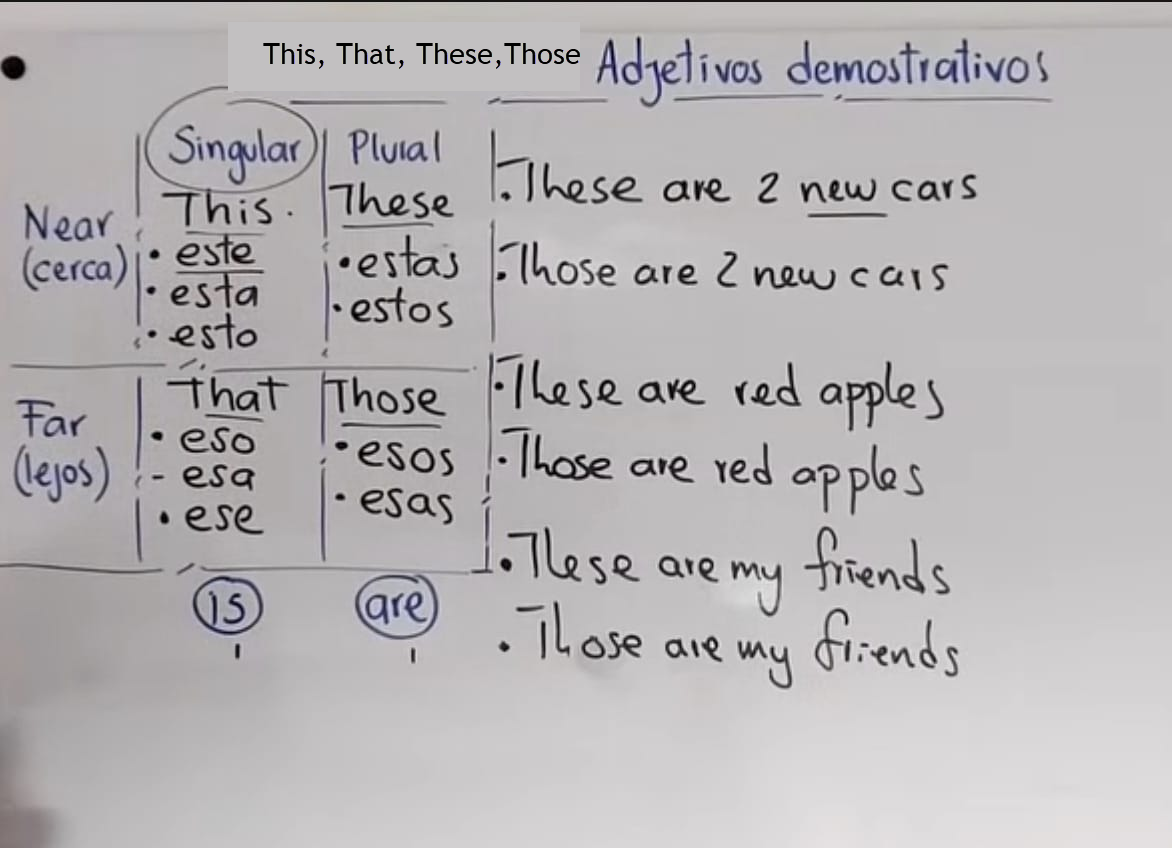 This, That, These,Those Adjetivos demostrativos
Singular Plural
Near (cerca)
This.
• este
• esta
• esto
These
• estas
• estos
Far (lejos)
That
• eso
- esa
• ese
Those
• esos
• esas
is are
• These are 2 new cars
• Those are 2 new cars
• These are red apples
• Those are red apples
• These are my friends
• Those are my friends